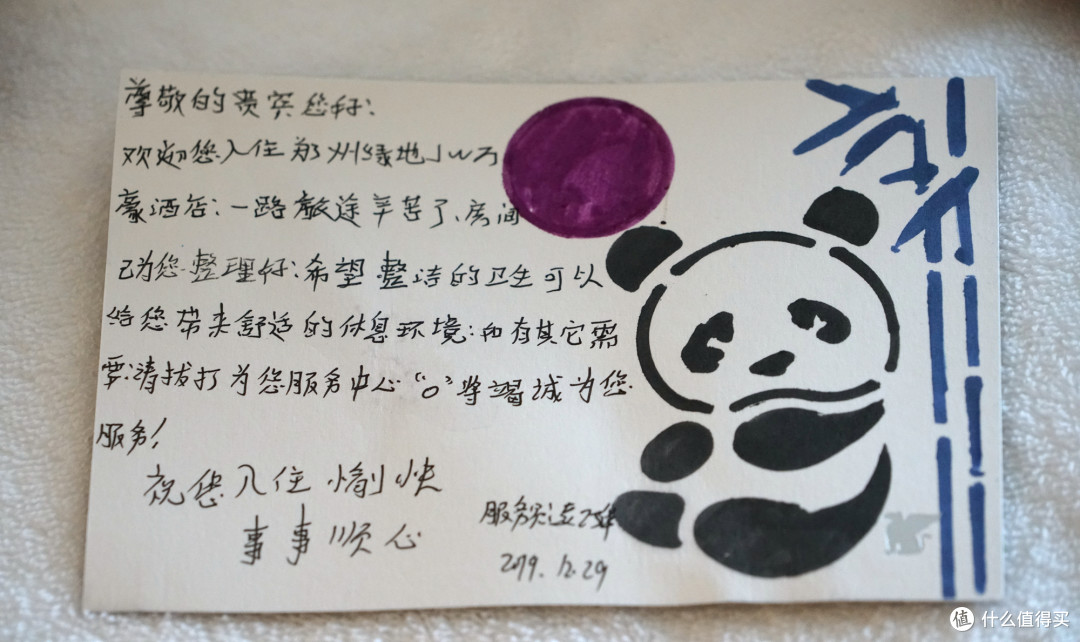 尊敬的贵宾您好：
欢迎您入住郑州绿地JW万
豪酒店：一路旅途辛苦了、房间
已为您整理好：希望整洁的卫生可以
给您带来舒适的休息环境：如有其它需
要：请拔打为您服务中心“0”将竭诚为您
服务！
祝您入住愉快
事事顺心
服务
2019.12.29
值 什么值得买